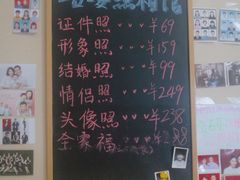 证件照 ￥69
形象照 ￥159
结婚照 ￥99
情侣照 ￥249
头像照 ￥238
全家福 ￥288